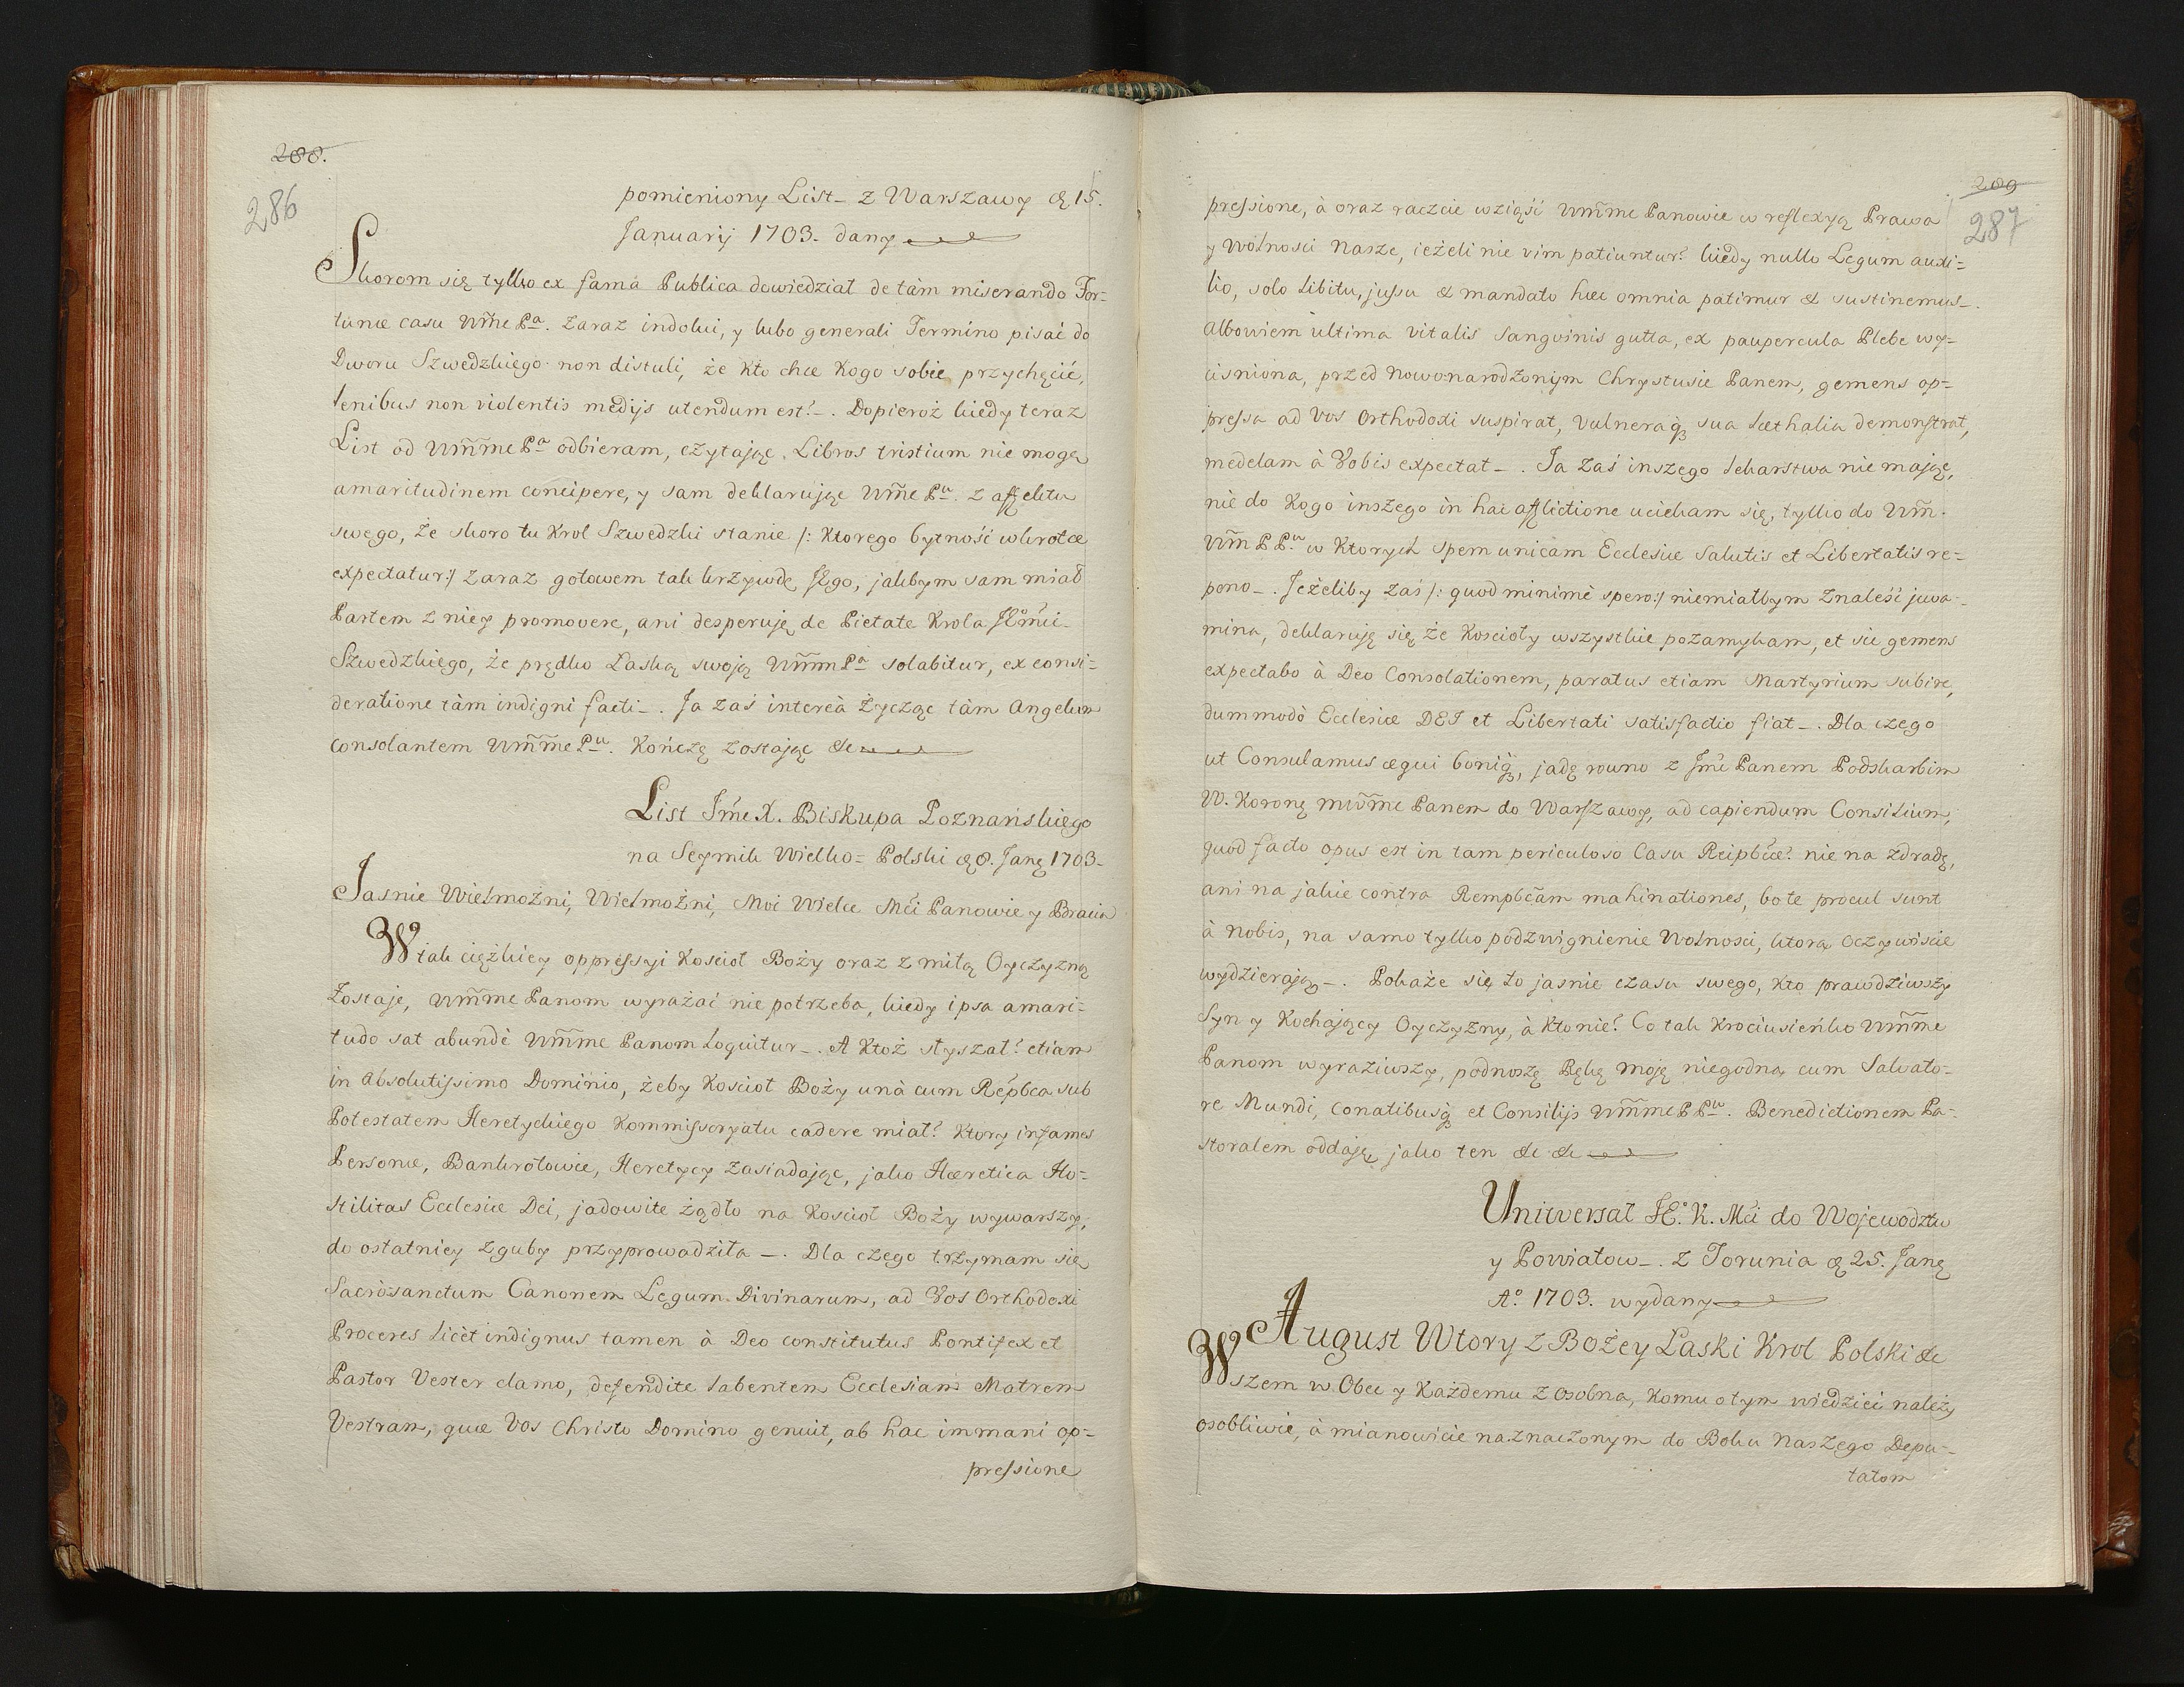 288.
286
pomieniony List_ z Warszawy d 15.
Januarij 1703. dany
Skorom się tylko ex fama Publica dowiedział de tàm miserando For=
tunæ casu Wm̃e Pa. Zaraz indolui, y lubo generali Termino pisać do
Dworu Szwedzkiego non distuli, że kto chce kogo sobie przychęcić,
lenibus non violentis medijs utendum est?_. Dopieroż kiedy teraz
List od Wm̃m̃e Pa odbieram, czytając Libros tristium nie mogę
amaritudinem concipere, y sam deklarując Wm̃e Pu. z affektu
swego, że skoro tu Krol Szwedzki stanie /: ktorego bytność wkrotce
expectatur:/ zaraz gotowem tak krzywdę JEgo, jakbym sam miał
Partem z niey promovere, ani desperuję de Pietate Krola JEm̃ci
Szwedzkiego, że prędko Łaską swoją Wm̃m Pa solabitur, ex consi=
deratione tàm indigni facti_. Ja zaś intereà życząc tàm Angelum
consolantem Wm̃m̃e Pu. Kończę zostając &c
List Jm̃e X. Biskupa Poznańskiego
na Seymik Wielko=Polski d 8. Janỹ 1703.
Jasnie Wielmożni, Wielmożni, Moi Wielce Mći Panowie y Bracia
W tak cięźkiey oppressyi Kosciol Boży oraz z miłą Oyczyzną
zostaje, Wm̃m̃e Panom wyrażać nie potrzeba, kiedy ipsa amari=
tudo sat abundè Wm̃m̃e Panom loquitur_. A Ktoż słyszał? etiam
in Absolutissimo Dominio, żeby Kosciol Boży unà cum Repbca sub
Potestatem Heretyckiego Kommissoryatu cadere miał? Ktory infames
Personæ, Bankrotowie, Heretycy zasiadając, jako Hæretica Ho=
stilitas Ecclesiæ Dei, jadowite żądło na Kosciol Boży wywarszy,
do ostatniey zguby przyprowadziła_. Dla czego trzymam się
Sacròsanctum Canonem Legum Divinarum, ad Vos Orthodoxi
Proceres licèt indignus tamen à Deo constitutus Pontifex et
Pastor Vester clamo, defendite labentem Ecclesiam Matrem
Vestram, quæ Vos Christo Domino genuit, ab hac immani op=
pressione
289
287
pressione, à oraz raczcie wziąść Wm̃m̃e Panowie w reflexyą Prawa
y Wolnosci Nasze, ieżeli nie vim patiuntur? kiedy nullo Legum auxi=
lio, solo libitu, jussu & mandato hæc omnia patimur & sustinemus_.
Albowiem ultima vitalis Sangvinis gutta, ex paupercula Plebe wy=
cisniona, przed Nowonarodzonym Chrystusie Panem, gemens op=
pressa ad Vos Orthodoxi suspirat, Vulneraq; sua læthalia demonstrat,
medelam à Vobis expectat_. Ja zaś inszego lekarstwa nie mając,
nie do kogo inszego in hac afflictione uciekam się, tylko do Wm̃.
Wm̃ PPu w ktorych Spem unicam Ecclesiæ Salutis et Libertatis re=
pono_. Jeżeliby zaś /: quod minimè spero:/ niemiałbym znaleść juva=
mina, deklaruję się że Koscioły wszystkie pozamykam, et sic gemens
expectabo à Deo Consolationem, paratus etiam Martyrium subire,
dummodò Ecclesiæ DEI et Libertati satisfactio fiat_. Dla czego
ut Consulamus æqui boniq;, jadę rowno z Jm̃e Panem Podskarbim
W. Koronỹ mw̃m̃e Panem do Warszawy, ad capiendum Consilium,
quod facto opus est in tam periculoso Casu Reipb̃cæ. nie na zdradę,
ani na jakie contra Rempb̃cam makinationes, bo te procul sunt
à nobis, na samo tylko podzwignienie Wolnosci, ktorą oczywiscie
wydzierają_. Pokaże się to jasnie czasu swego, kto prawdziwszy
Syn y Kochający Oyczyzny, à kto nie? Co tak krociusieńko Wm̃m̃e
Panom wyraziwszy, podnoszę Rękę moję niegodną cum Salvato=
re Mundi, conatibusq; et Consilijs Wm̃m̃e PPu. Benedictionem Pa=
storalem oddaję jako ten &c &c
Uniwersał JE.° K. Mći do Wojewodztw
y Powiatow_. z Torunia d 25. Janỹ
A.° 1703. wydany
August Wtory z Bożey Łaski Krol Polski &c
Wszem w Obec y każdemu z osobna, komu o tym wiedzieć należy
osobliwie, à mianowicie naznaczonym do Boku Naszego Depu=
tatom